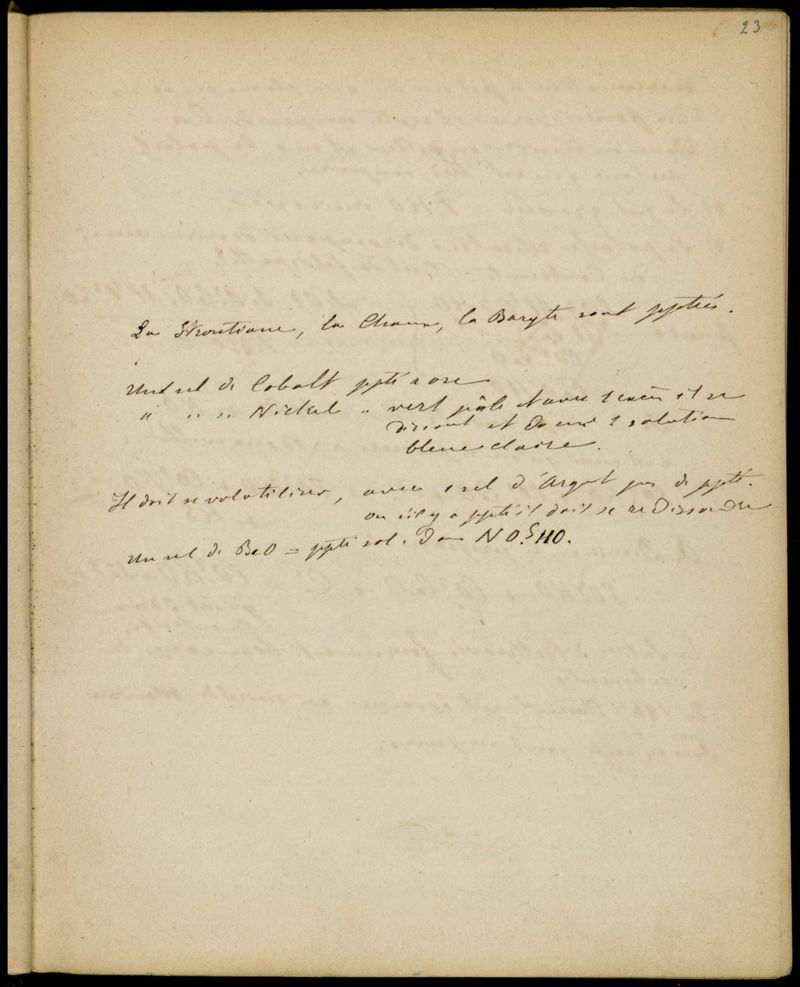 23
La Strontiane, la Chaux, la Baryte sont pptés.
Un sel de Cobalt ppté rose
" " " Nickel " vert pâle et avec 1 excès il se
dissout et donne 1 solution
bleue claire.
Il doit se volatiliser, avec 1 sel d'Argent pas de ppté.
ou s'il y a ppté il doit se redissoudre
Un sel de BaO = ppté sol. dans NO⁵HO.